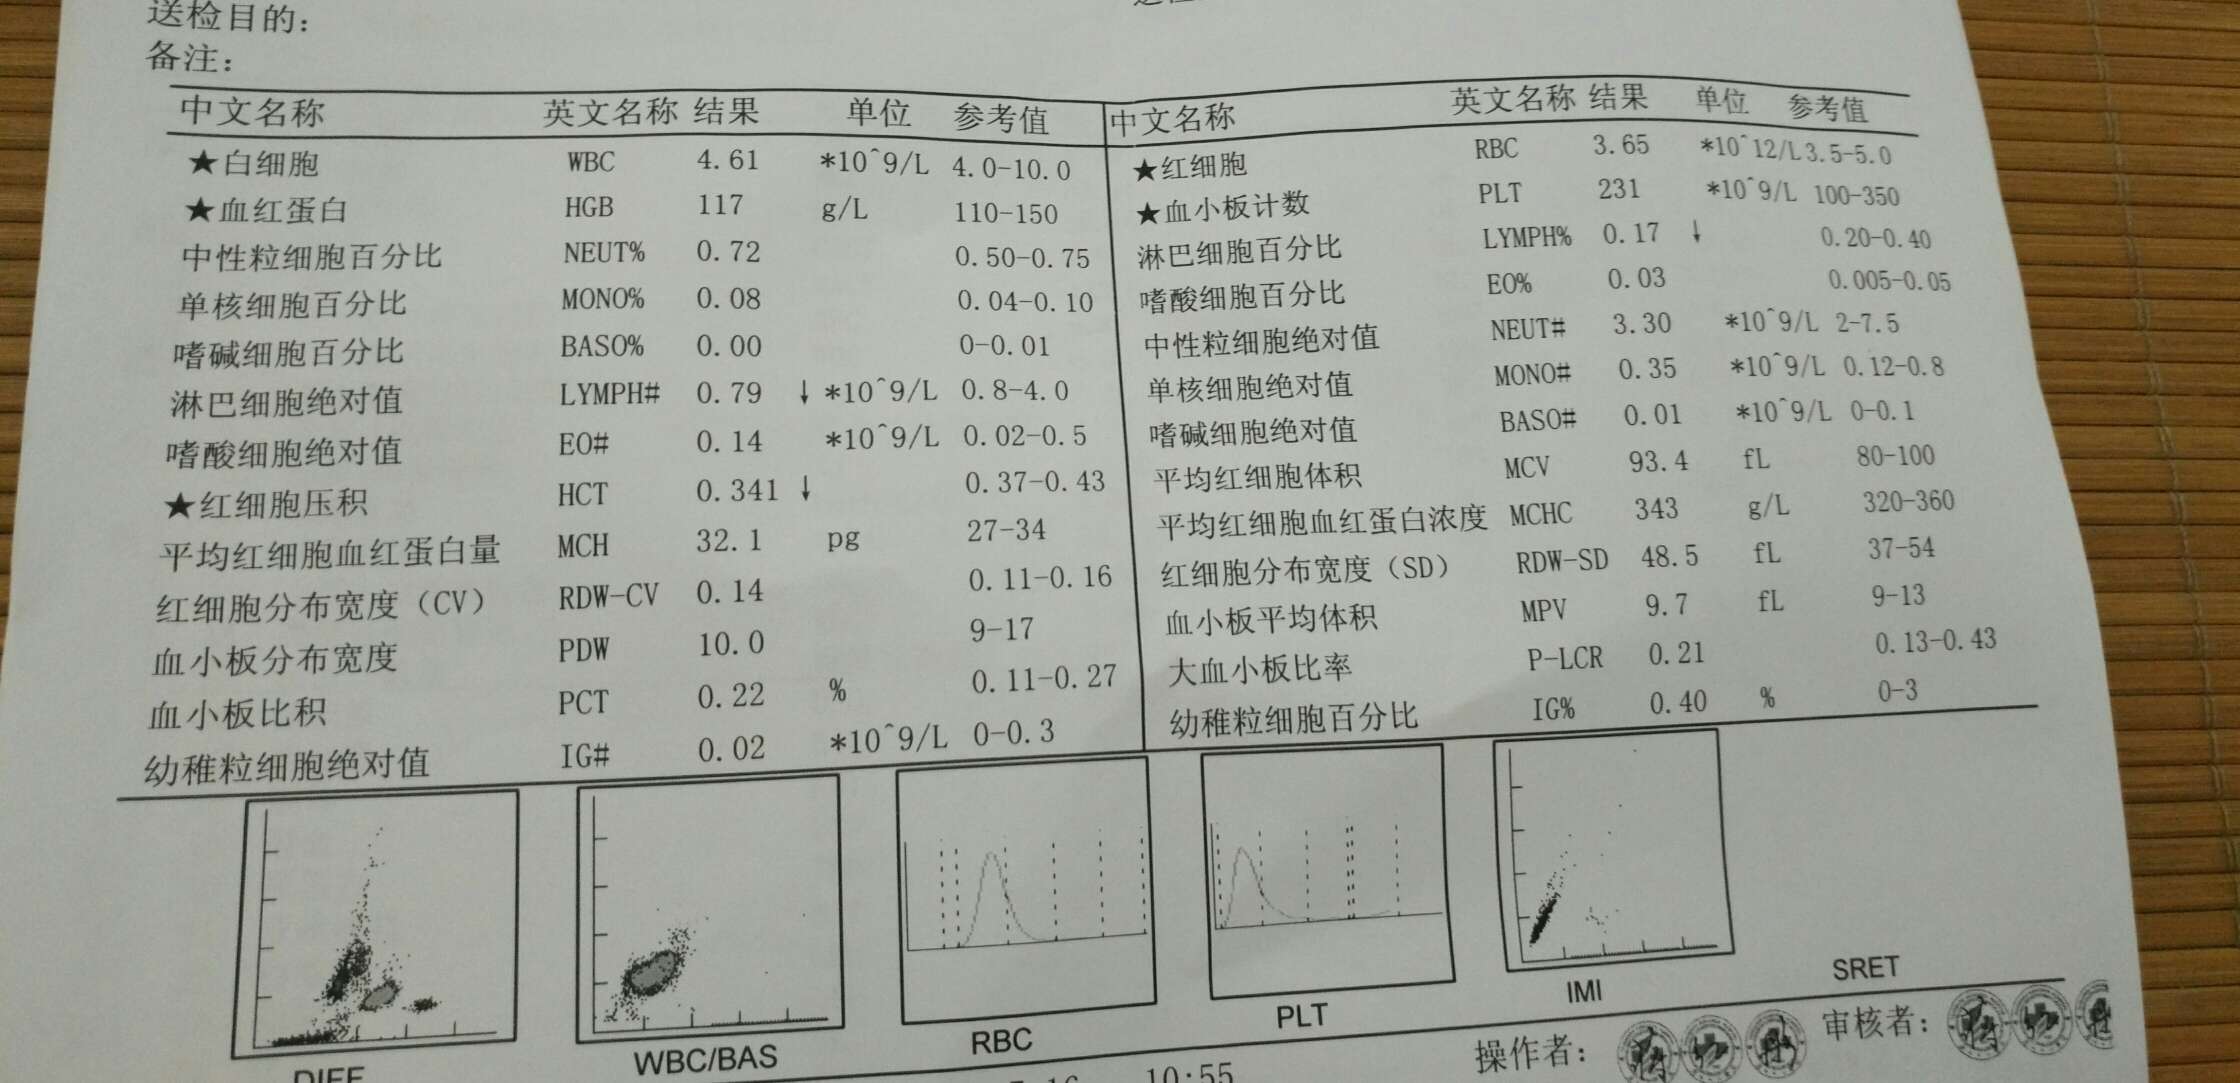 送检目的:
备注:
中文名称 英文名称 结果 单位 参考值 中文名称 英文名称 结果 单位 参考值
★白细胞 WBC 4.61 *10^9/L 4.0-10.0 ★红细胞 RBC 3.65 *10^12/L 3.5-5.0
★血红蛋白 HGB 117 g/L 110-150 ★血小板计数 PLT 231 *10^9/L 100-350
中性粒细胞百分比 NEUT% 0.72 0.50-0.75 淋巴细胞百分比 LYMPH% 0.17 ↓ 0.20-0.40
单核细胞百分比 MONO% 0.08 0.04-0.10 嗜酸细胞百分比 EO% 0.03 0.005-0.05
嗜碱细胞百分比 BASO% 0.00 0-0.01 中性粒细胞绝对值 NEUT# 3.30 *10^9/L 2-7.5
淋巴细胞绝对值 LYMPH# 0.79 ↓ *10^9/L 0.8-4.0 单核细胞绝对值 MONO# 0.35 *10^9/L 0.12-0.8
嗜酸细胞绝对值 EO# 0.14 *10^9/L 0.02-0.5 嗜碱细胞绝对值 BASO# 0.01 *10^9/L 0-0.1
★红细胞压积 HCT 0.341 ↓ 0.37-0.43 平均红细胞体积 MCV 93.4 fL 80-100
平均红细胞血红蛋白量 MCH 32.1 pg 27-34 平均红细胞血红蛋白浓度 MCHC 343 g/L 320-360
红细胞分布宽度（CV） RDW-CV 0.14 0.11-0.16 红细胞分布宽度（SD） RDW-SD 48.5 fL 37-54
血小板分布宽度 PDW 10.0 9-17 血小板平均体积 MPV 9.7 fL 9-13
血小板比积 PCT 0.22 % 0.11-0.27 大血小板比率 P-LCR 0.21 0.13-0.43
幼稚粒细胞绝对值 IG# 0.02 *10^9/L 0-0.3 幼稚粒细胞百分比 IG% 0.40 % 0-3
DIFF WBC/BAS RBC PLT IMI SRET
10:55 操作者: 审核者: